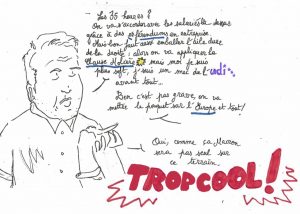 Les 35 heures ?
On va s'accorder avec les salariés là-dessus
grâce à des référendums en entreprise
Mais bon faut aussi emballer l'aile dure
de la droite, alors on va appliquer la
clause Molière mais moi je suis
plus soft, j'suis un mec de l'udi...
avant tout...
Ben c'est pas grave, on va
mettre le paquet sur l'Europe et tout !
Oui, comme ça, Macron
sera pas seul sur
ce terrain.
TROPCOOL!